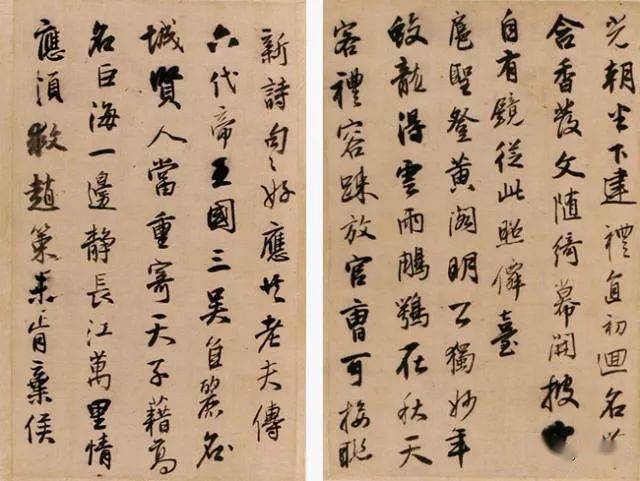 光朝下建禮直初迴名
含香發文隨綺幕開披
自有鏡從此照僊臺
扈聖登黃閣明公獨妙年
蛟龍得雲雨鵰鶚在秋天
客禮容疎放官曹可接聯
新詩句〻好應老夫傳
六代帝王國三吳自麗名
城賢人當重寄天子藉高
名巨海一邊靜長江萬里情
應須救趙策未肯棄侯